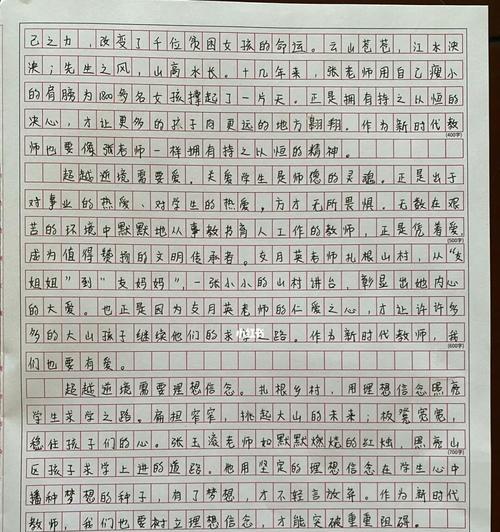 己之力，改变了千位贫困女孩的命运。云山苍苍，江水泱
泱；先生之风，山高水长。十几年来，张老师用自己瘦小
的肩膀为1800多名女孩撑起了一片天。正是拥有持之以恒的
决心，才让更多的孩子向更远的地方翱翔。作为新时代教
(400字)
师也要像张老师一样拥有持之以恒的精神。
超越逆境需要爱。关爱学生是师德的灵魂。正是出于
对事业的热爱、对学生的热爱，方才无所畏惧。无数在艰
苦的环境中默默地从事教书育人工作的教师，正是凭着爱，
(500字)
成为值得赞扬的文明传承者。支月英老师扎根山村，从“支
姐姐”到“支妈妈”，一张小小的山村讲台，彰显出她内心
的大爱。也正是因为支月英老师的仁爱之心，才让许许多
多的大山孩子继续他们的求学之路。作为新时代教师，我
小红书
(600字)
们也要有爱。
超越逆境需要理想信念。扎根乡村，用理想信念照亮
学生求学之路。扁担窄窄，挑起大山的未来；板凳宽宽，
稳住孩子们的心。张玉滚老师如默默燃烧的红烛，照亮山
(700字)
区孩子求学上进的道路。他用坚实的理想信念在学生心中
播种梦想的种子，有了梦想，才不轻言放弃。作为新时代
教师，我们也要树立理想信念，才能突破重重阻碍。